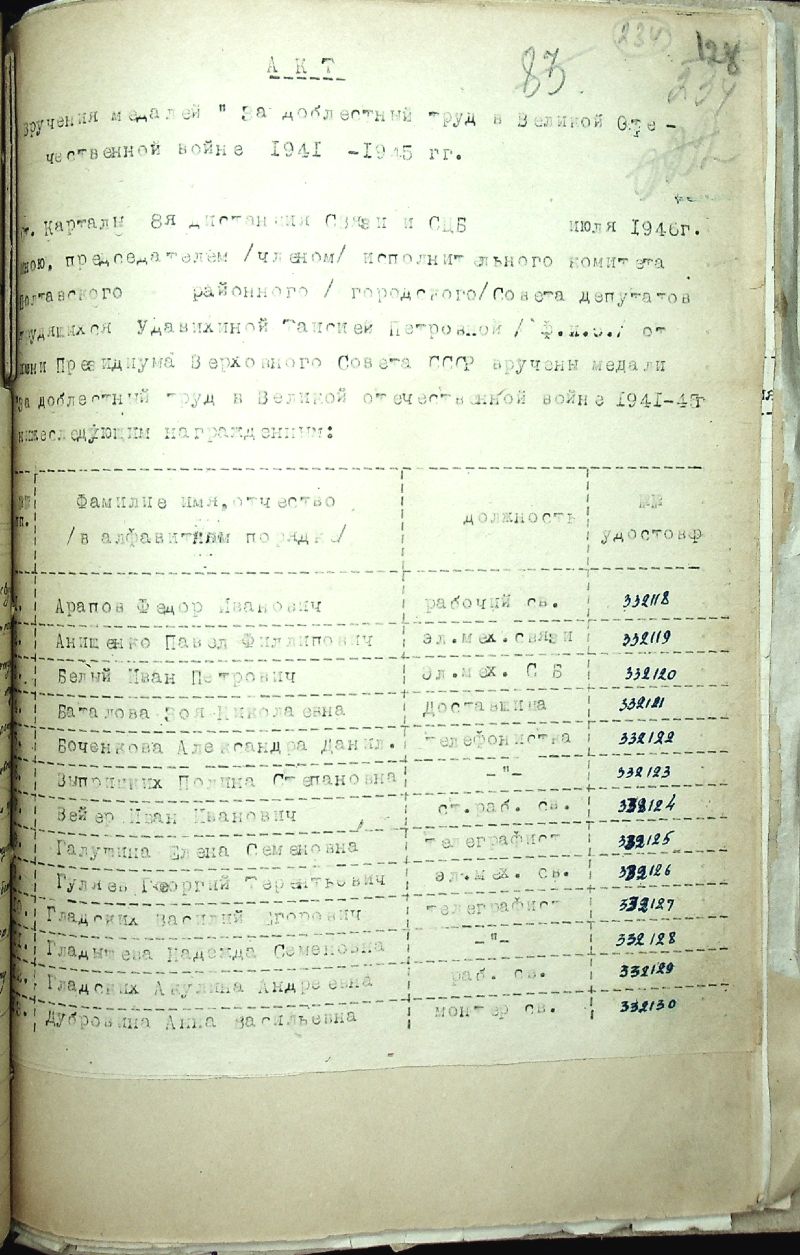 234
128
А К Т
85
234
вручения медалей " За доблестный труд в Великой Оте -
чественной войне 1941 -1945 гг.
ст. Карталы 8я дистанция Связи и СЦБ июля 1946г.
мною, председателем /членом/ исполнительного комитета
Полтавского районного / городского/Совета депутатов
трудящихся Удавихиной Таисией Петровной / ф.и.о./ от
имени Президиума Верховного Совета СССР вручены медали
"За доблестный труд в Великой отечественной войне 1941-45г
нижеследующим награжденным:
№№ Фамилие имя,отчество должность №№
пп. /в алфавитном порядке/ удостовр
1. Арапов Федор Иванович рабочий св. 332118
2. Анищенко Павел Филлипович эл.мех.связи 332119
3. Белый Иван Петрович Эл.мех. С Б 332120
4. Баталова Зоя Николаевна Доставщица 332121
5. Боченкова Александра Данил. телефонистка 332122
6. Выприцких Полина Степановна -"- 332123
7. Вейер Иван Иванович ст.раб. св. 332124
8. Галушина Елена Семеновна телеграфист 332125
9. Гуляев Георгий Терентьевич эл.мех. св. 332126
10. Гладских Василий Егорович телеграфист 332127
11. Гладышева Надежда Семеновна -"- 332128
12. Гладских Акулина Андреевна раб. св. 332129
13. Дубровина Анна Васильевна монтер св. 332130